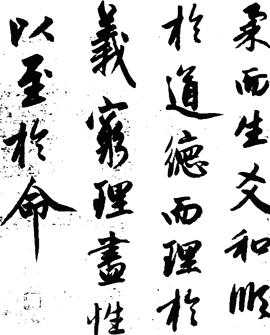 柔而生爻和順
於道德而理於
義窮理盡性
以至於命